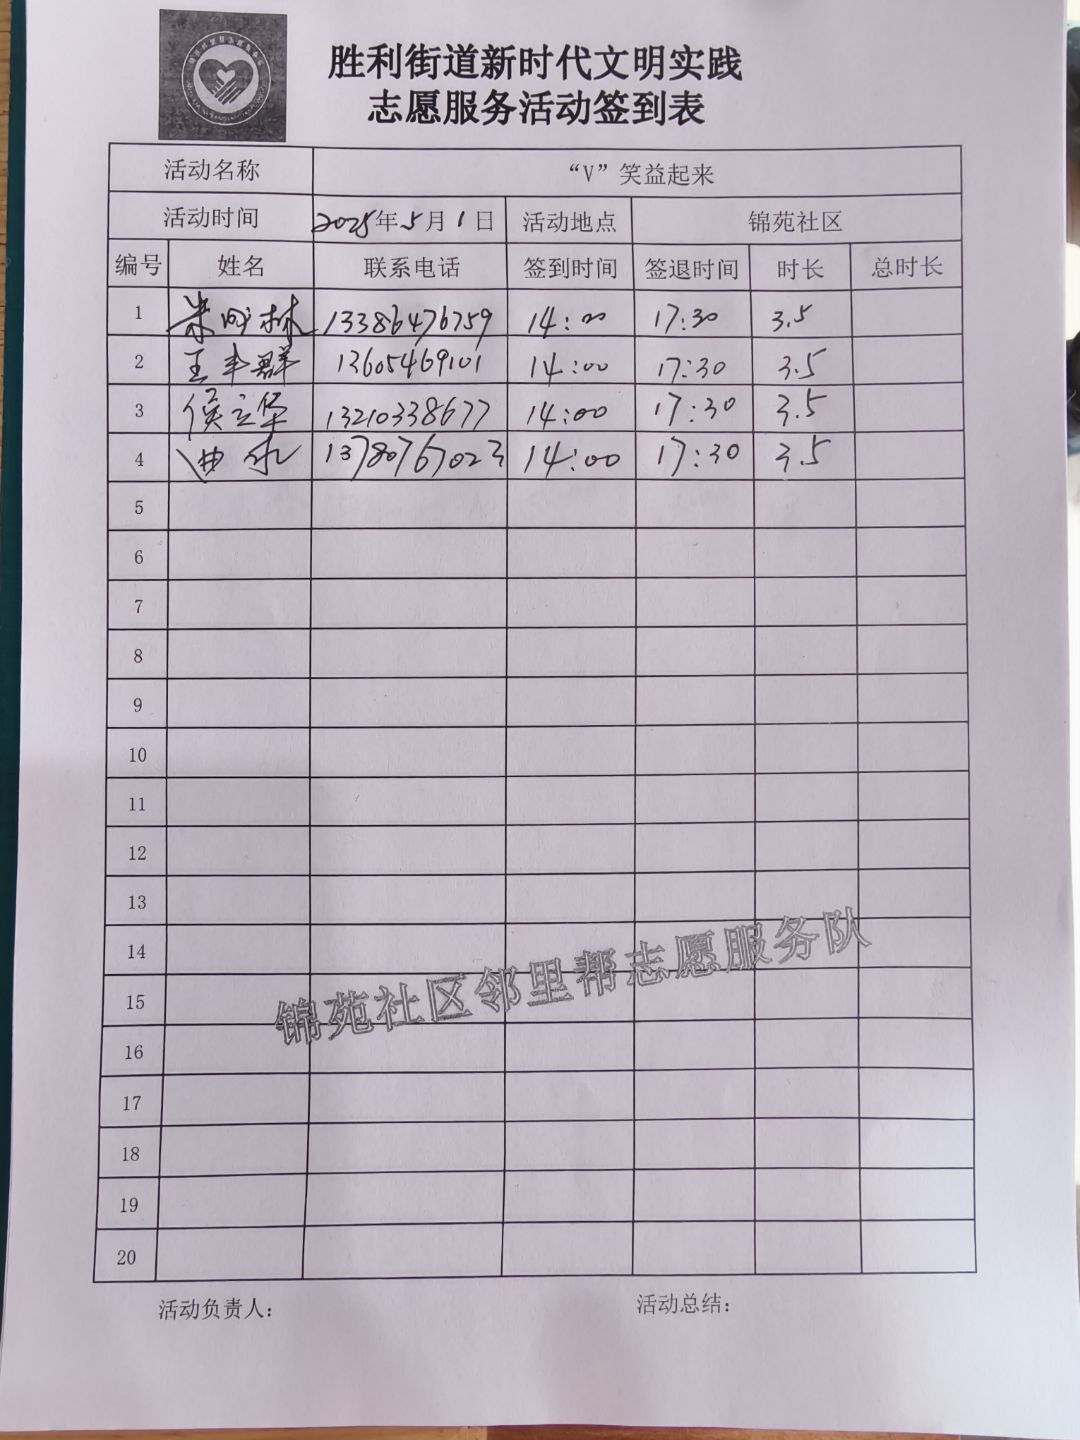 胜利街道新时代文明实践
志愿服务活动签到表
活动名称 “V”笑益起来
活动时间 2025年5月1日 活动地点 锦苑社区
编号 姓名 联系电话 签到时间 签退时间 时长 总时长
1 林 13386476759 14:00 17:30 3.5
2 王丰群 13605469101 14:00 17:30 3.5
3 侯立华 13210338677 14:00 17:30 3.5
4 13780767023 14:00 17:30 3.5
5
6
7
8
9
10
11
12
13
14
锦苑社区邻里帮志愿服务队
15
16
17
18
19
20
活动负责人： 活动总结：